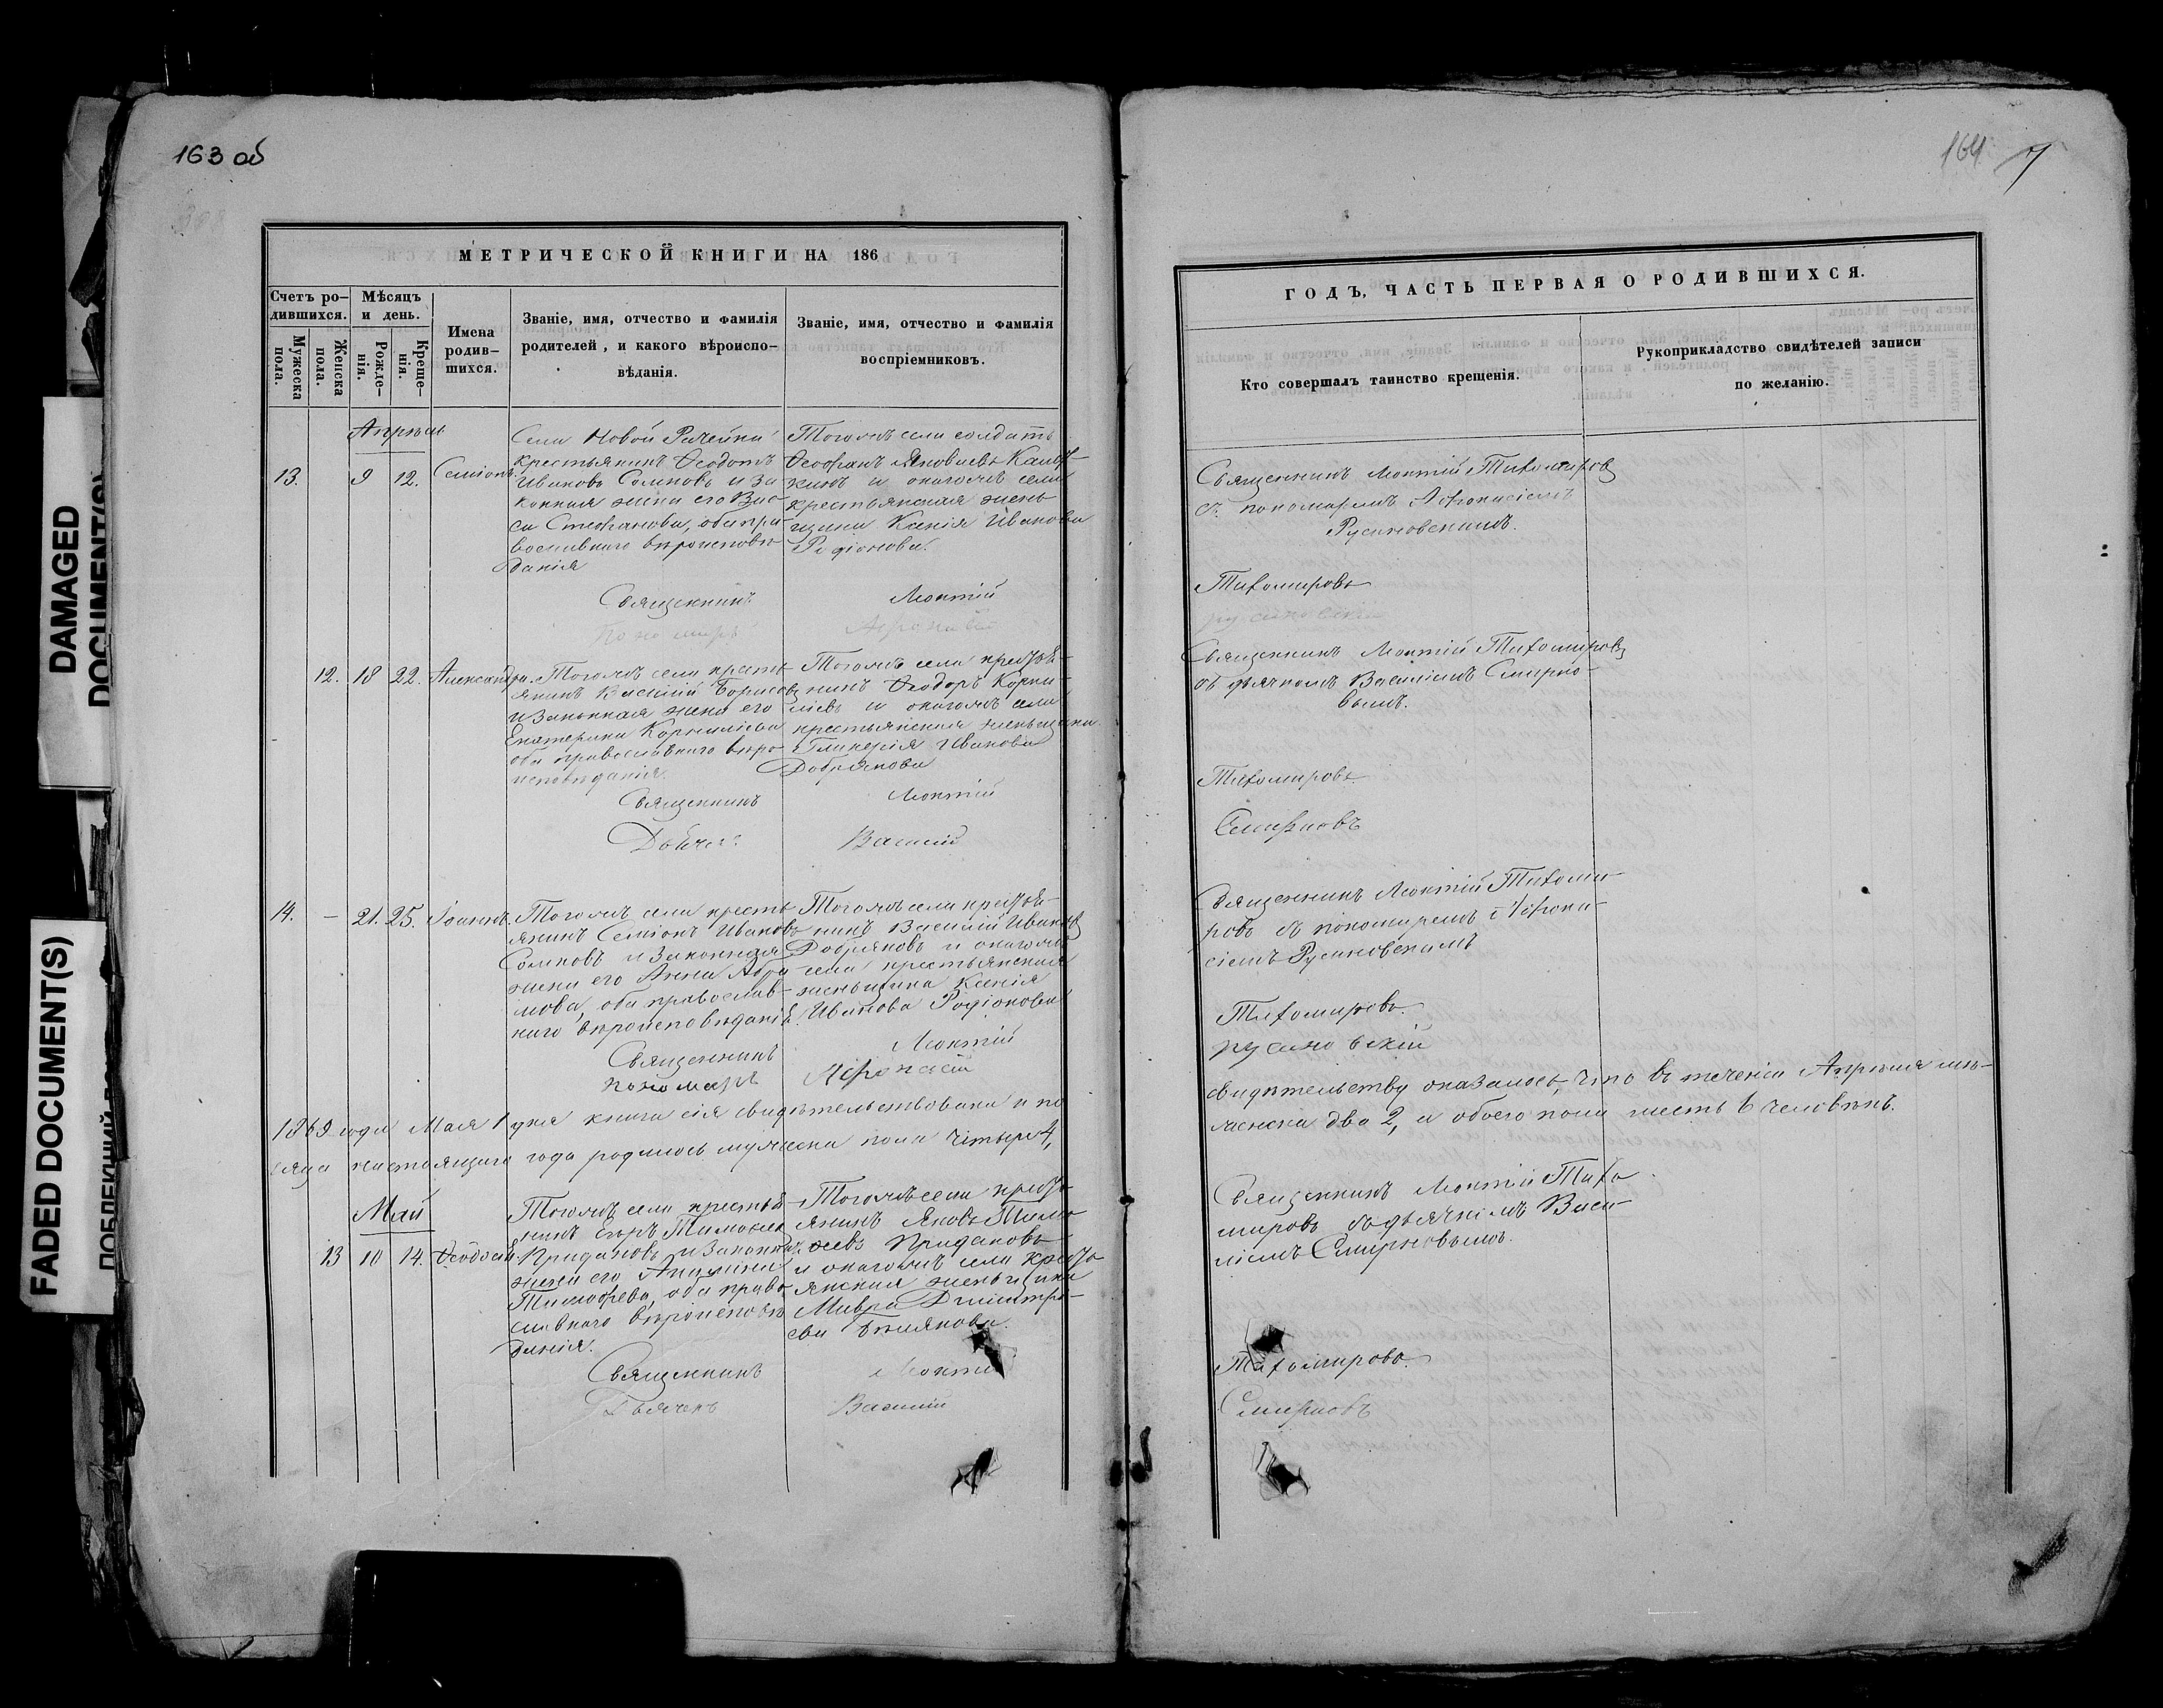 163 об
МЕТРИЧЕСКОЙ КНИГИ НА 186
Счетъ ро-
дившихся.
Мужеска пола.
Женска пола.
Мѣсяцъ
и день.
Рожде-
нія.
Креще-
нія.
Имена
родив-
шихся.
Званіе, имя, отчество и фамилія
родителей, и какого вѣроиспо-
вѣданія.
Званіе, имя, отчество и фамилія
воспріемниковъ.
Апрѣль
13. 9 12. Семіонъ.
Села Новой Рачейки
крестьянинъ Ѳеодотъ
Ивановъ Сомковъ и за
конная жена его Вас-
са Стефанова, оба пра-
вославнаго вѣроисповѣ-
данія
Тогожъ села солдатъ
Ѳеофанъ Яковлевъ
и онагожъ села
крестьянская жень
щина Ксенія Иванова
Родіонова.
Священникъ Леонтій
Пономарь Афонасій
12. 18 22. Александра.
Тогожъ села кресть
янинъ Василій Борисовъ
и законная жена его
Екатерина Корнилова
оба православнаго вѣро
исповѣданія.
Тогожъ села крестья-
нинъ Ѳеодоръ Корни-
ліевъ и онагожъ села
крестьянская женьщина
Гликерія Иванова
Добрякова
Священникъ Леонтій
Дьячекъ Василій
14. – 21. 25. Іоаннъ.
Тогожъ села кресть
янинъ Семіонъ Ивановъ
Сомковъ и законная
жена его Анна Абра
мова, оба православ-
наго вѣроисповѣданія.
Тогожъ села крестья-
нинъ Василій Ивановъ
Добряковъ и онагожъ
села крестьянская
женьщина Ксенія
Иванова Родіонова
Священникъ Леонтій
пономарь Афонасій
1869 года Мая 1 дня книга сія свидѣтельствована и по
сяца настоящаго года родилось мужеска пола четыре 4,
Май
13 10 14. Ѳеодосія.
Тогожъ села крестья
нинъ Егоръ Тимофеев
Придановъ и законная
жена его Акилина
Тимофеева, оба право
славнаго вѣроисповѣ
данія.
Тогожъ села кресть
янинъ Яковъ Тимо
феевъ Придановъ
и онагожъ села кресть
янская женьщина
Мавра Димитрі-
ева Белякова.
Священникъ Леонтій
Дьячекъ Василій
164 7
ГОДЪ, ЧАСТЬ ПЕРВАЯ О РОДИВШИХСЯ.
Кто совершалъ таинство крещенія.
Рукоприкладство свидѣтелей записи
по желанію.
Священникъ Леонтій Тихомировъ
съ пономаремъ Афонасіемъ
Русановскимъ.
Тихомировъ
русановскій
Священникъ Леонтій Тихомировъ
съ дьячкомъ Василіемъ Смирно-
вымъ.
Тихомировъ.
Смирновъ
Священникъ Леонтій Тихоми-
ровъ съ пономаремъ Афона-
сіемъ Русановскимъ
Тихомировъ.
русановскій
свидѣтельству оказалось, что въ теченіи Апрѣля мѣ-
женска два 2, а обоего пола шесть 6 человѣкъ.
Священникъ Леонтій Тихо
мировъ съ дьячкомъ Васи-
ліемъ Смирновымъ.
Тихомировъ.
Смирновъ
DAMAGED
DOCUMENT(S)
FADED DOCUMENT(S)